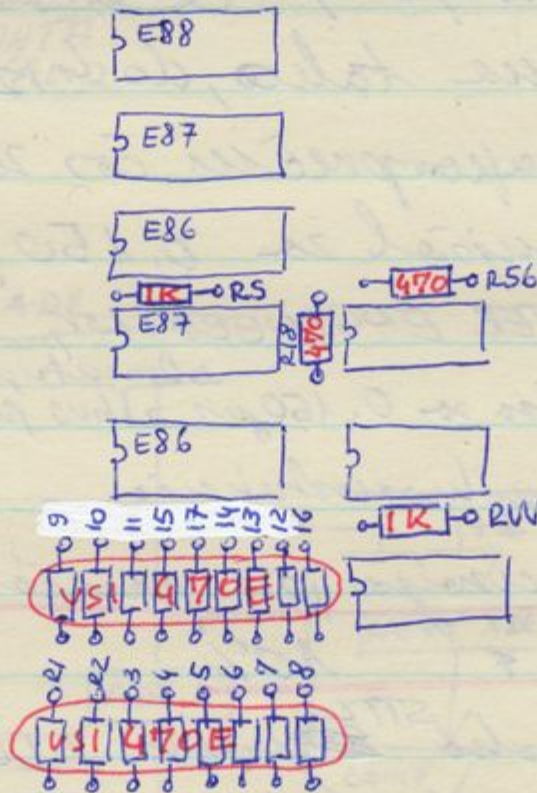 E88
E87
E86
1K R5
470 R56
E87
R18 470
E86
1K RVV
9 10 11 15 17 14 13 12 16
VSI 470E
R1 R2 3 4 5 6 7 8
VSI 470E